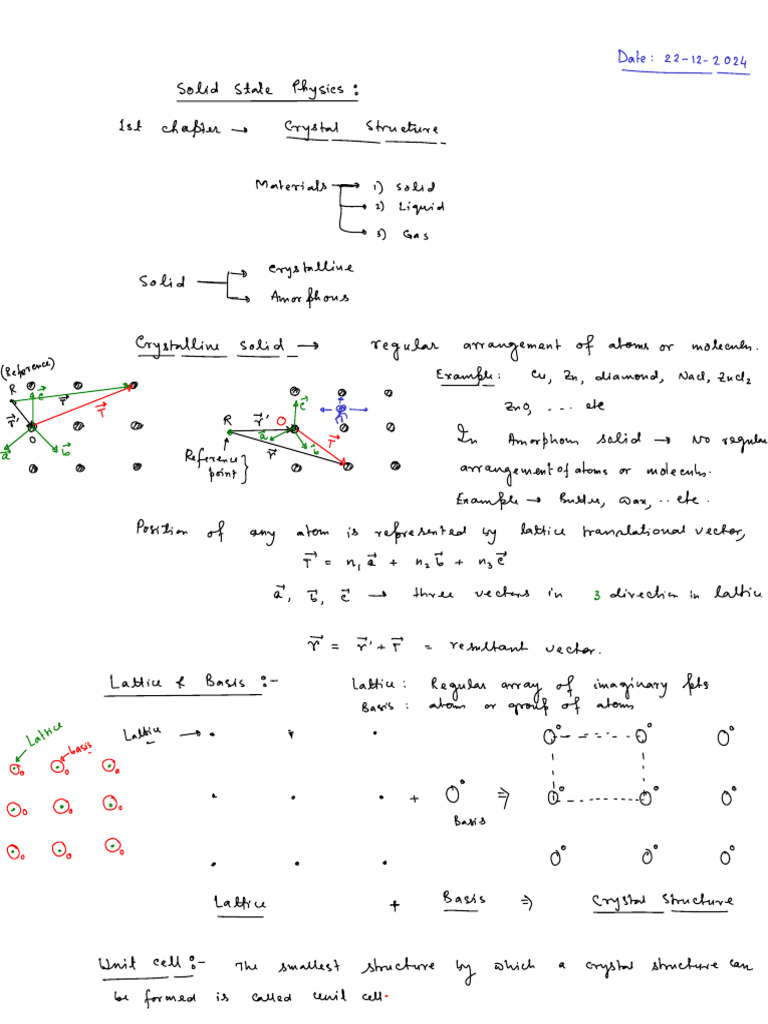 Date: 22-12-2024
Solid State Physics:
1st chapter → Crystal Structure
Materials → 1) Solid
→ 2) Liquid
→ 3) Gas
Solid → Crystalline
→ Amorphous
Crystalline solid → regular arrangement of atoms or molecules.
(Reference)
R
r⃗
T⃗
r⃗'
c⃗
O
a⃗
b⃗
R
r⃗'
O
c⃗
a⃗
b⃗
T⃗
r⃗
Reference point}
Example: Cu, Zn, diamond, NaCl, ZnCl2
ZnO, ... etc
In Amorphous solid → No regular
arrangement of atoms or molecules.
Example → Butter, wax, .. etc.
Position of any atom is represented by lattice translational vector,
T⃗ = n1 a⃗ + n2 b⃗ + n3 c⃗
a⃗, b⃗, c⃗ → three vectors in 3 direction in lattice
r⃗ = r⃗' + T⃗ = resultant vector.
Lattice & Basis :-
Lattice: Regular array of imaginary pts
Basis: atom or group of atoms
Lattice
basis
Lattice →
+
Basis
⇒
Lattice + Basis ⇒ Crystal Structure
Unit cell :- The smallest structure by which a crystal structure can
be formed is called unit cell.